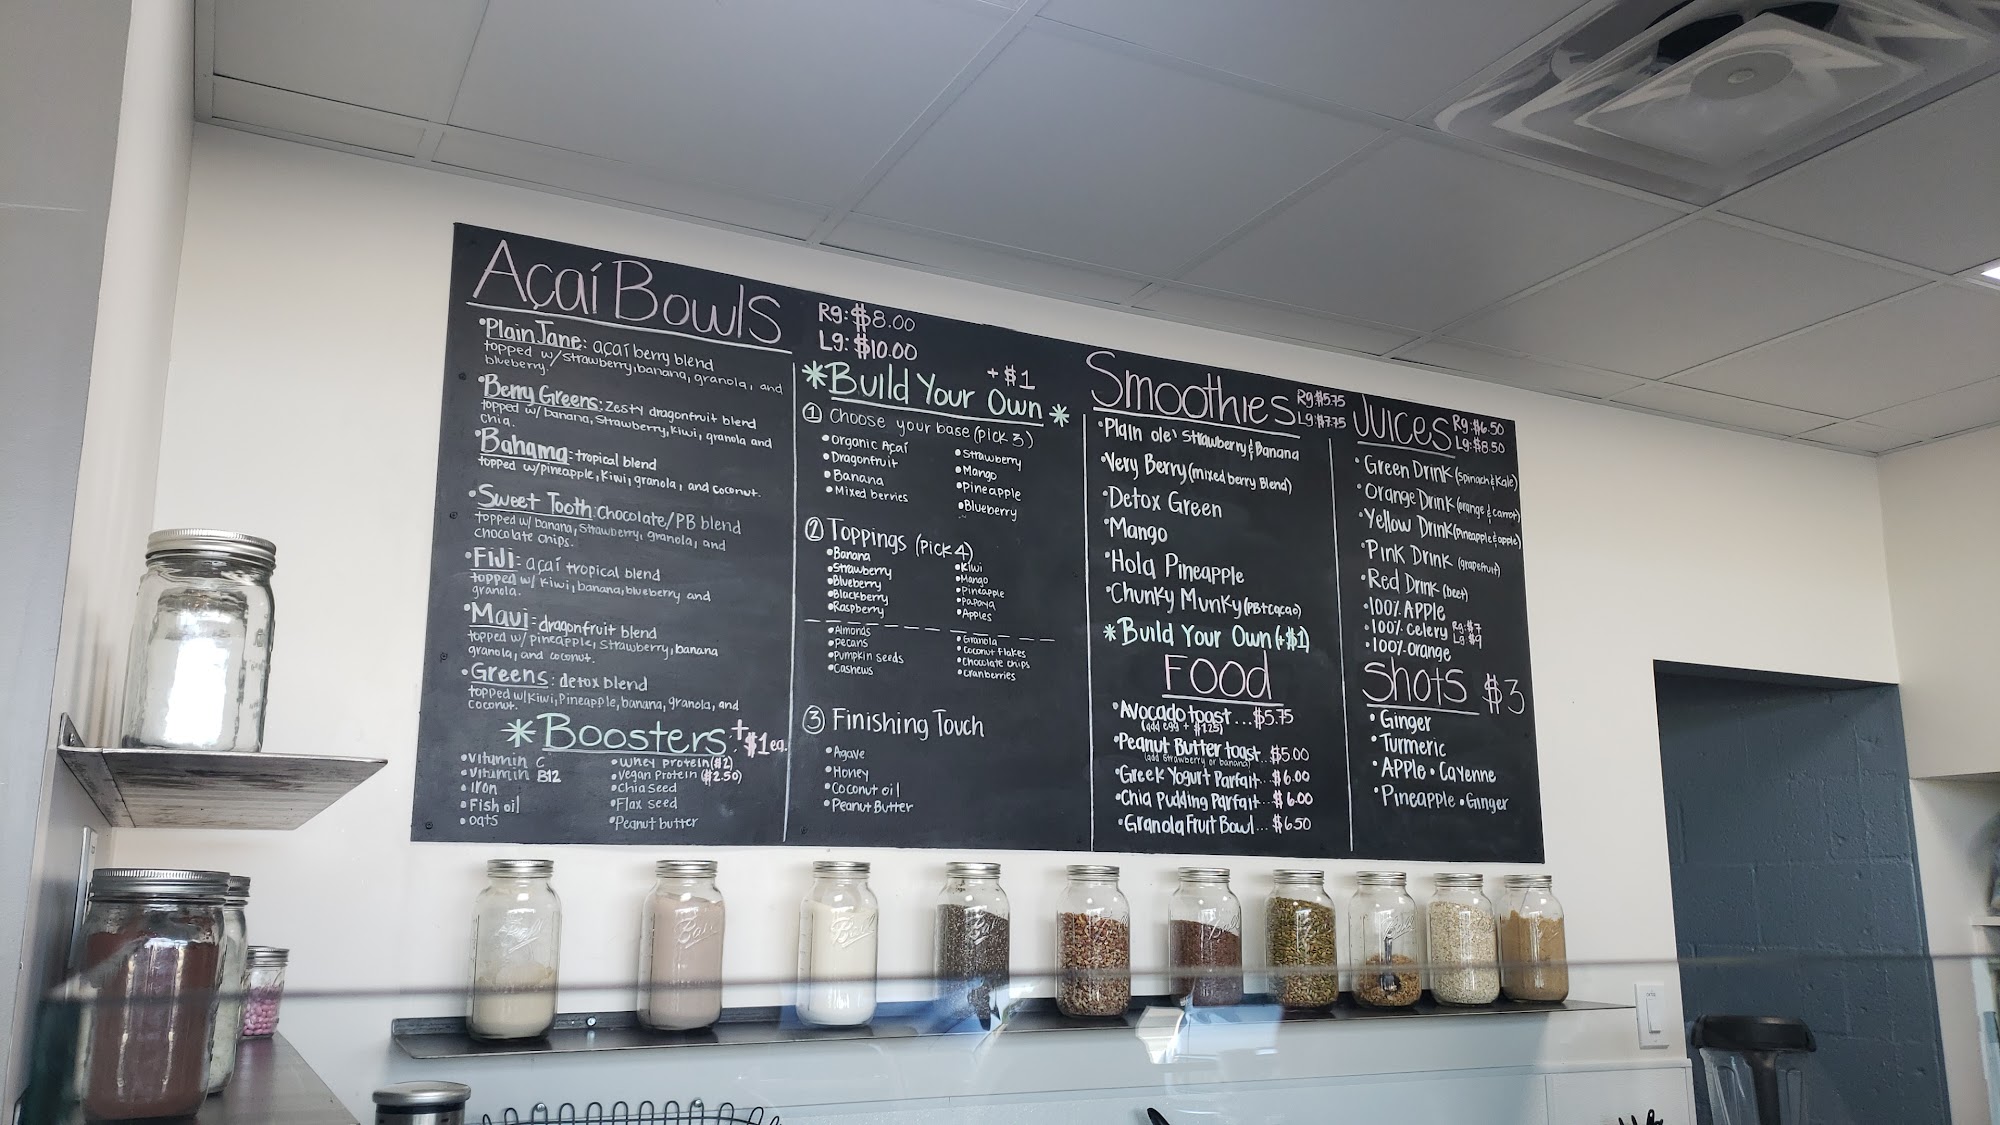 Açaí Bowls
Rg: $8.00
Lg: $10.00
•Plain Jane: açaí berry blend
topped w/strawberry, banana, granola, and
blueberry.
•Berry Greens: Zesty dragonfruit blend
topped w/ banana, strawberry, kiwi, granola and
chia.
•Bahama: tropical blend
topped w/pineapple, kiwi, granola, and coconut.
•Sweet Tooth: Chocolate/PB blend
topped w/ banana, strawberry, granola, and
chocolate chips.
•FIJI: açaí tropical blend
topped w/ kiwi, banana, blueberry and
granola.
•Maui: dragonfruit blend
topped w/ pineapple, strawberry, banana
granola, and coconut.
•Greens: detox blend
topped w/ kiwi, Pineapple, banana, granola, and
coconut.
*Boosters: +$1 ea.
•vitamin C
•vitamin B12
•Iron
•Fish oil
•oats
•Whey protein ($2)
•Vegan Protein ($2.50)
•Chia Seed
•Flax seed
•Peanut butter
+ $1
*Build Your Own*
① Choose your base (pick 3)
•Organic Açaí
•Dragonfruit
•Banana
•Mixed berries
•Strawberry
•Mango
•Pineapple
•Blueberry
② Toppings (pick 4)
•Banana
•Strawberry
•Blueberry
•Blackberry
•Raspberry
•Kiwi
•Mango
•Pineapple
•Papaya
•Apples
•Almonds
•Pecans
•Pumpkin seeds
•Cashews
•Granola
•Coconut Flakes
•Chocolate chips
•Cranberries
③ Finishing Touch
•Agave
•Honey
•Coconut oil
•Peanut Butter
Smoothies
Rg:$5.75
Lg:$7.75
•Plain ole' Strawberry & Banana
•Very Berry (mixed berry Blend)
•Detox Green
•Mango
•Hola Pineapple
•Chunky Munky (PB+cacao)
*Build Your Own (+$1)
Food
•Avocado toast...$5.75
(add egg + $1.25)
•Peanut Butter toast..$5.00
(add strawberry or banana)
•Greek Yogurt Parfait..$6.00
•Chia Pudding Parfait...$6.00
•Granola Fruit Bowl...$6.50
Juices
Rg:$6.50
Lg:$8.50
•Green Drink (Spinach & Kale)
•Orange Drink (orange & carrot)
•Yellow Drink (Pineapple & apple)
•Pink Drink (grapefruit)
•Red Drink (beet)
•100% Apple
•100% Celery Rg:$7
Lg:$9
•100% Orange
Shots $3
•Ginger
•Turmeric
•Apple•Cayenne
•Pineapple•Ginger
Ball
Ball
Ball
Ball
Ball
Ball
Ball